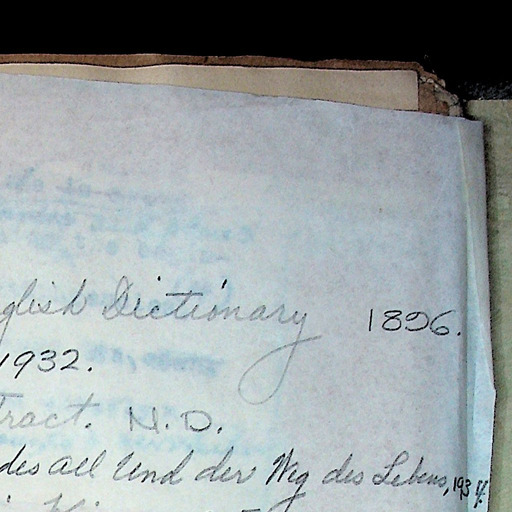 glish Dictionary 1896.
1932.
Tract. N.D.
des all und der Weg des Lebens, 193